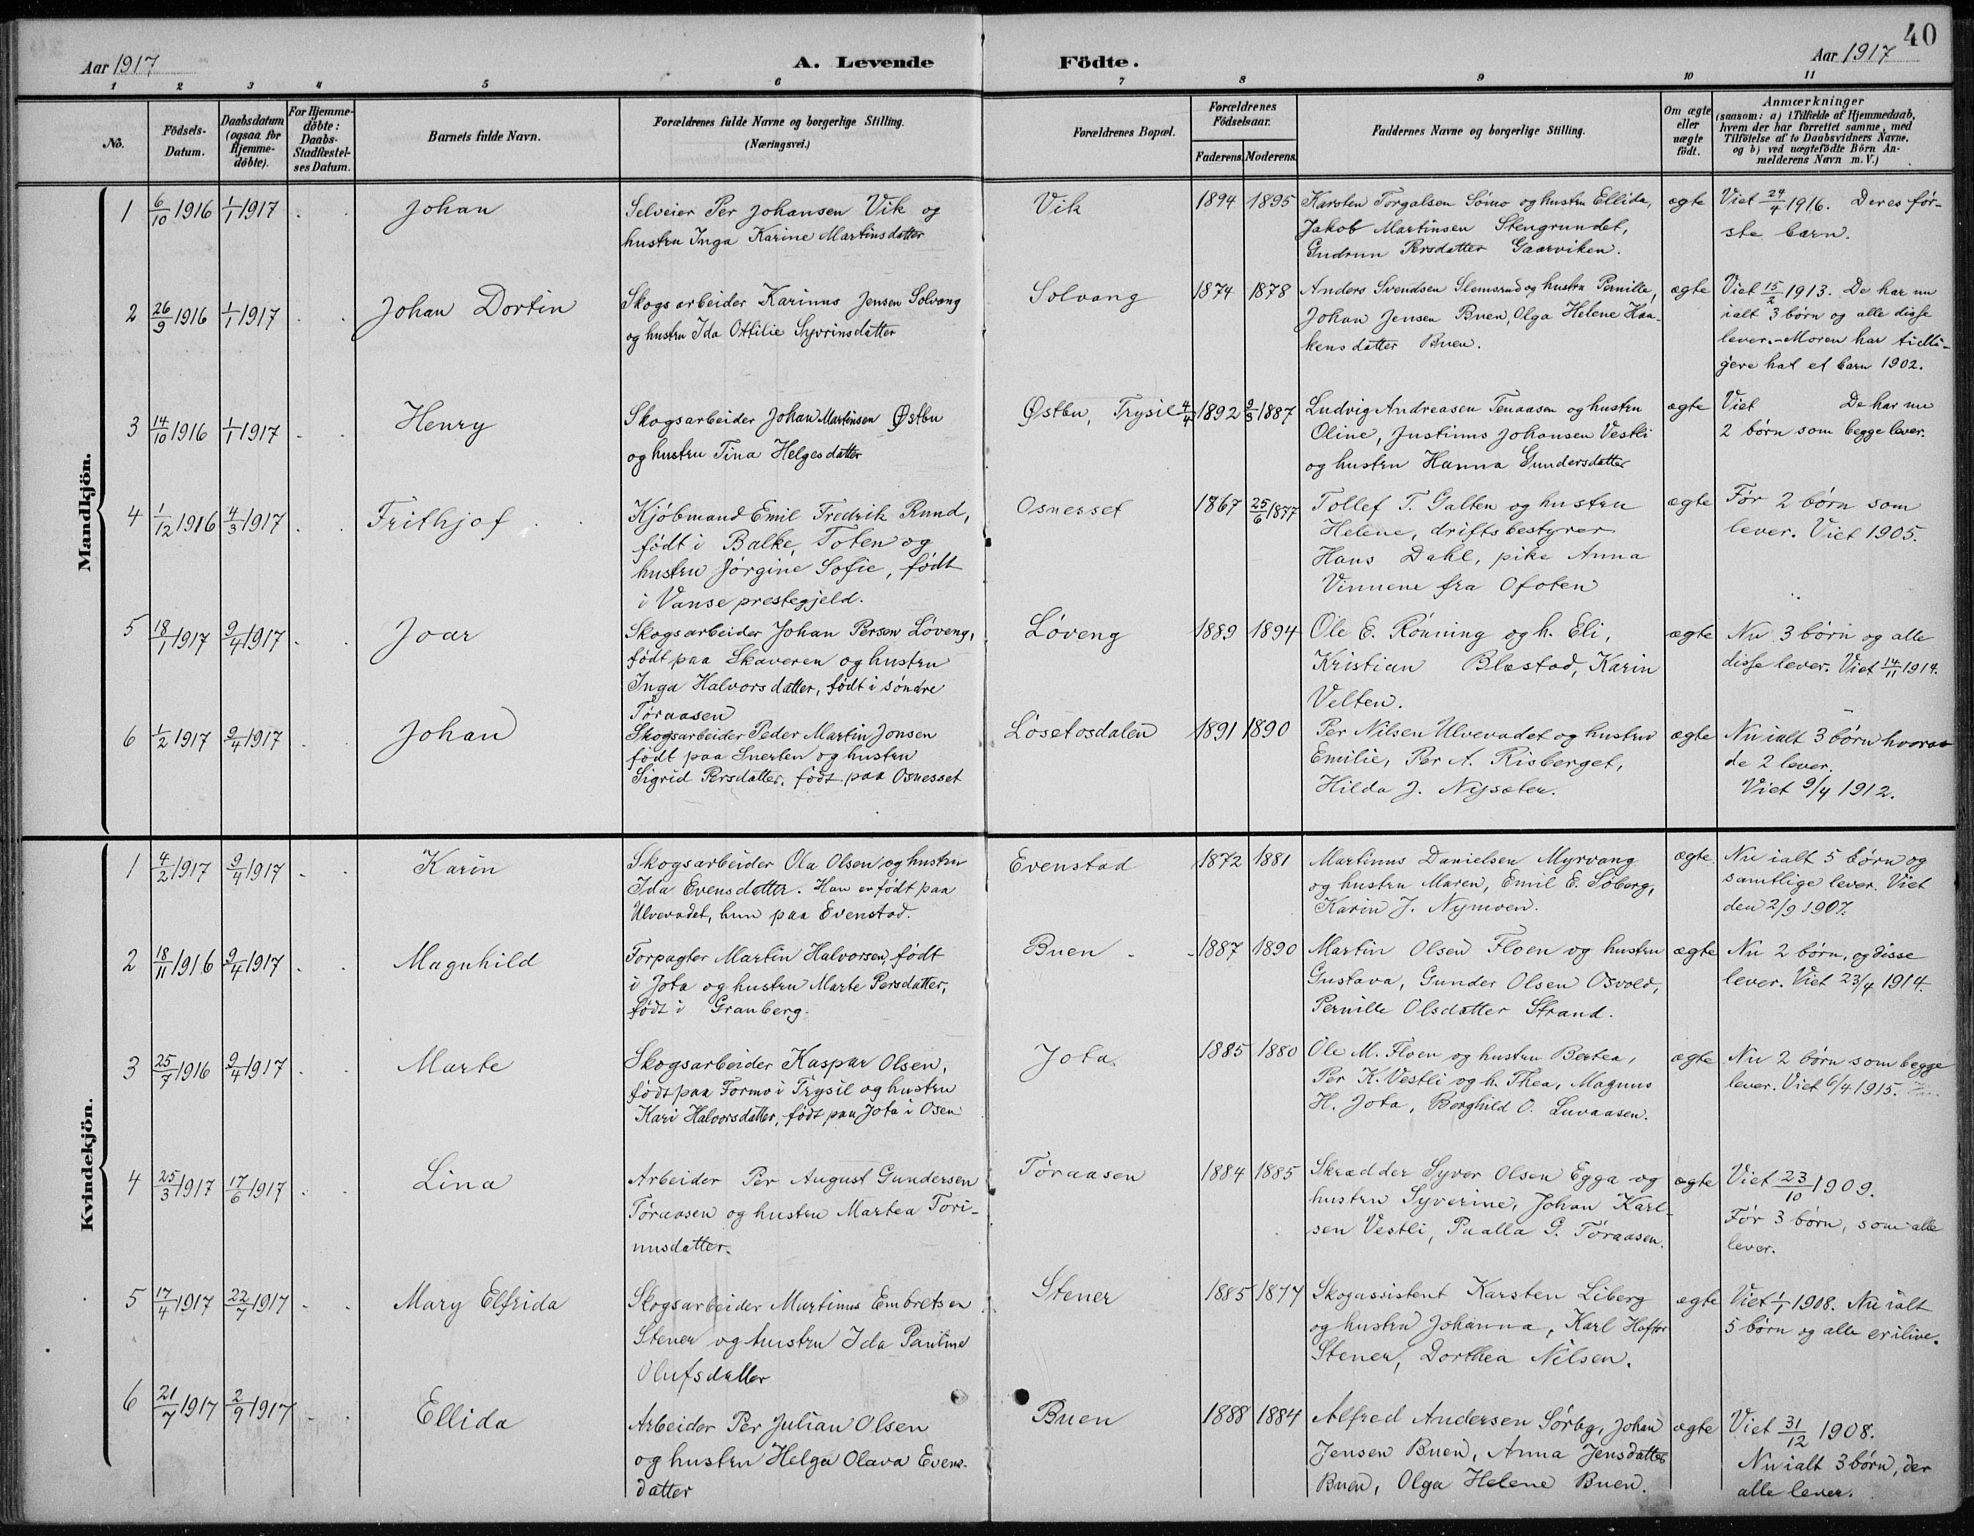 40
Aar 1917 A. Levende Födte. Aar 1917
1 2 3 4 5 6 7 8 9 10 11
No. Födsels-Datum. Daabsdatum (ogsaa for Hjemme-döbte). For Hjemme-döbte: Daabs-Stadfæstel-ses Datum. Barnets fulde Navn. Forældrenes fulde Navne og borgerlige Stilling. (Næringsvei.) Forældrenes Bopæl. Forældrenes Födselsaar. Faderens. Moderens. Faddernes Navne og borgerlige Stilling. Om ægte eller uægte födt. Anmærkninger (saasom: a) i Tilfælde af Hjemmedaab, hvem der har forrettet samme, med Tilföielse af to Daabsvidners Navne. og b) ved uægtefödte Börn An-melderens Navn m. V.)
Mandkjön.
1 6/10 1916 1/1 1917 Johan Selveier Per Johansen Vik og Vik 1894 1895 Karsten Torgalsen Sømo og hustru Ellida, ægte Viet 24/4 1916. Deres før-
hustru Inga Karine Martinsdatter Jakob Martinsen Stengrundet, ste barn.
Gudrun Persdatter Gaarviken.
2 26/9 1916 1/1 1917 Johan Dortin Skogsarbeider Karinus Jensen Solvang Solvang 1874 1878 Anders Svendsen Slemsrud og hustru Pernille, ægte Viet 15/2 1913. De har nu
og hustru Ida Ottilie Syvrinsdatter Johan Jensen Buen, Olga Helene Haa- ialt 3 børn og alle disse
kensdatter Buen. lever. - Moren har tidli-
gere hat et barn 1902.
3 14/10 1916 1/1 1917 Henry Skogsarbeider Johan Martinsen Østbu Østbu, Trysil 4/4 1892 9/3 1887 Ludvig Andreasen Tenaasen og hustru ægte Viet De har nu
og hustru Tina Helgesdatter Oline, Justinus Johansen Vestli 2 børn som begge lever.
og hustru Hanna Gundersdatter
4 1/12 1916 4/3 1917 Frithjof Kjøbmand Emil Fredrik Rund, Osnesset 1867 25/6 1877 Tollef T. Galten og hustru ægte Før 2 børn som
født i Balke, Toten og Helene, driftsbestyrer lever. Viet 1905.
hustru Jørgine Sofie, født Hans Dahl, pike Anna
i Vanse prestegjeld. Vinnene fra Ofoten
5 18/1 1917 9/4 1917 Joar Skogsarbeider Johan Person Løveng, Løveng 1889 1894 Ole E. Rønning og h. Eli, ægte Nu 3 børn og alle
født paa Skaveren og hustru Kristian Blæstad, Karin disse lever. Viet 14/11 1914.
Inga Halvorsdatter, født i søndre Velten.
Tøraasen
6 1/2 1917 9/4 1917 Johan Skogsarbeider Peder Martin Jonsen Løsetosdalen 1891 1890 Per Nilsen Ulvevadet og hustru ægte Nu ialt 3 børn hvorav
født paa Snerten og hustru Emilie, Per A. Risberget, de 2 lever.
Sigrid Persdatter, født paa Osnesset Hilda J. Nysæten. Viet 9/4 1912.
Kvindekjön.
1 4/2 1917 9/4 1917 Karin Skogsarbeider Ola Olsen og hustru Evenstad 1872 1881 Martinus Danielsen Myrvang ægte. Nu ialt 5 børn og
Ida Evensdatter. Han er født paa og hustru Maren, Emil E. Søberg, samtlige lever. Viet
Ulvevadet, hun paa Evenstad. Karin J. Nymoen. den 2/9 1907.
2 18/11 1916 9/4 1917 Magnhild Forpagter Martin Halvorsen, født Buen 1887 1890 Martin Olsen Floen og hustru ægte Nu 2 børn, og disse
i Jota og hustru Marte Persdatter, Gustava, Gunder Olsen Osvold, lever. Viet 23/4 1914.
født i Granberg. Pernille Olsdatter Strand.
3 25/7 1916 9/4 1917 Marte Skogsarbeider Kaspar Olsen, Jota 1885 1880 Ole M. Floen og hustru Bertea, ægte Nu 2 børn som begge
født paa Formo i Trysil og hustru Per K. Vestli og h. Thea, Magnus lever. Viet 6/4 1915.
Kari Halvorsdatter, født paa Jota i Osen H. Jota, Borghild O. Luvaasen.
4 25/3 1917 17/6 1917 Lina Arbeider Per August Gundersen Tøraasen 1884 1885 Skrædder Syver Olsen Egga og ægte Viet 23/10 1909.
Tøraasen og hustru Martea Tori- hustru Syverine, Johan Karl- Før 3 børn, som alle
nusdatter. sen Vestli, Paalla G. Tøraasen. lever.
5 17/4 1917 22/7 1917 Mary Elfrida Skogsarbeider Martinus Embretsen Stener 1885 1877 Skogassistent Karsten Liberg ægte Viet 1/1 1908. Nu ialt
Stener og hustru Ida Pauline og hustru Johanna, Karl Haftor 5 børn og alle er ilive.
Olufsdatter Stener, Dorthea Nilsen.
6 21/7 1917 2/9 1917 Ellida Arbeider Per Julian Olsen Buen 1888 1884 Alfred Andersen Sørby, Johan ægte Viet 31/12 1908.
og hustru Helga Olava Evens- Jensen Buen, Anna Jensdatter Nu ialt 3 børn, der
datter Buen, Olga Helene Buen. alle lever.